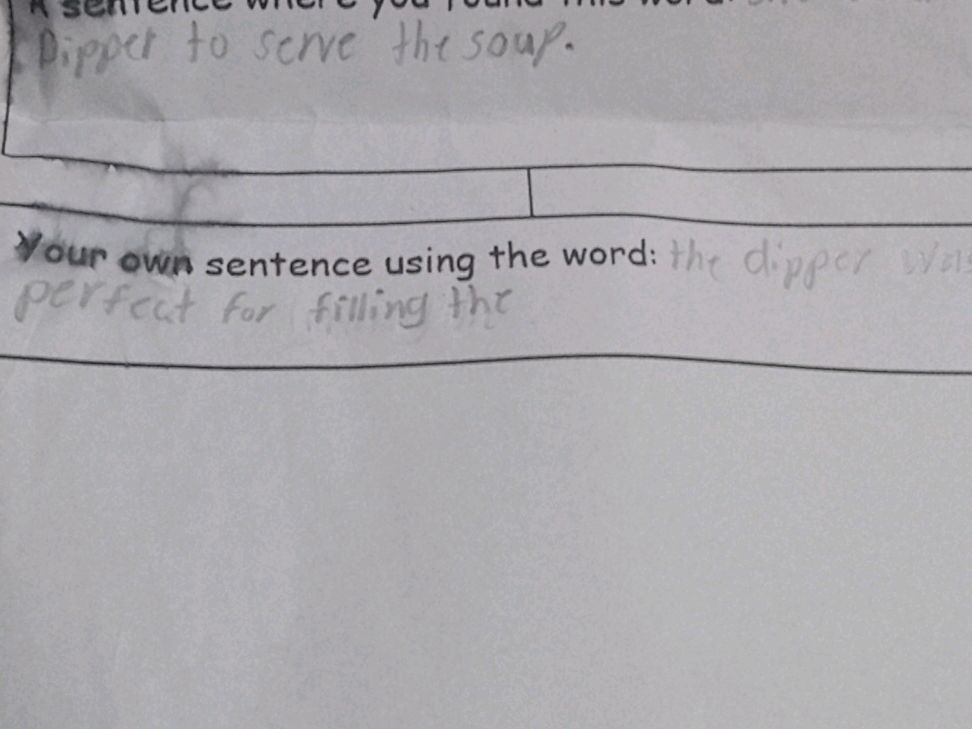 A sentence where you found this word:
Dipper to serve the soup.
Your own sentence using the word: the dipper was
perfect for filling the